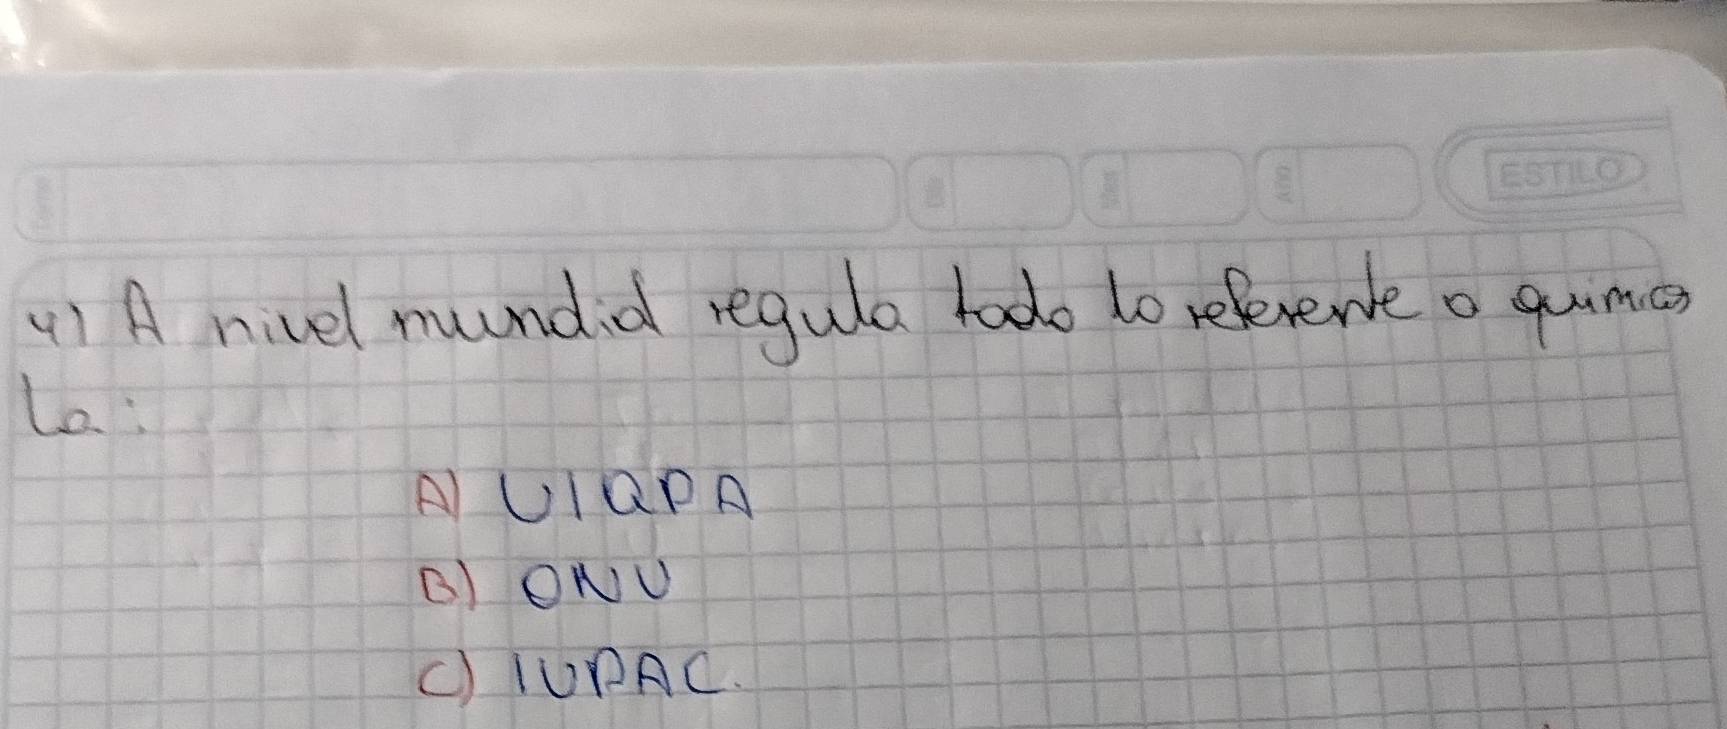 ESTILO
4) A nivel mundial regula todo lo referente a química
La:
A) UIQPA
B) ONU
C) IUPAC.